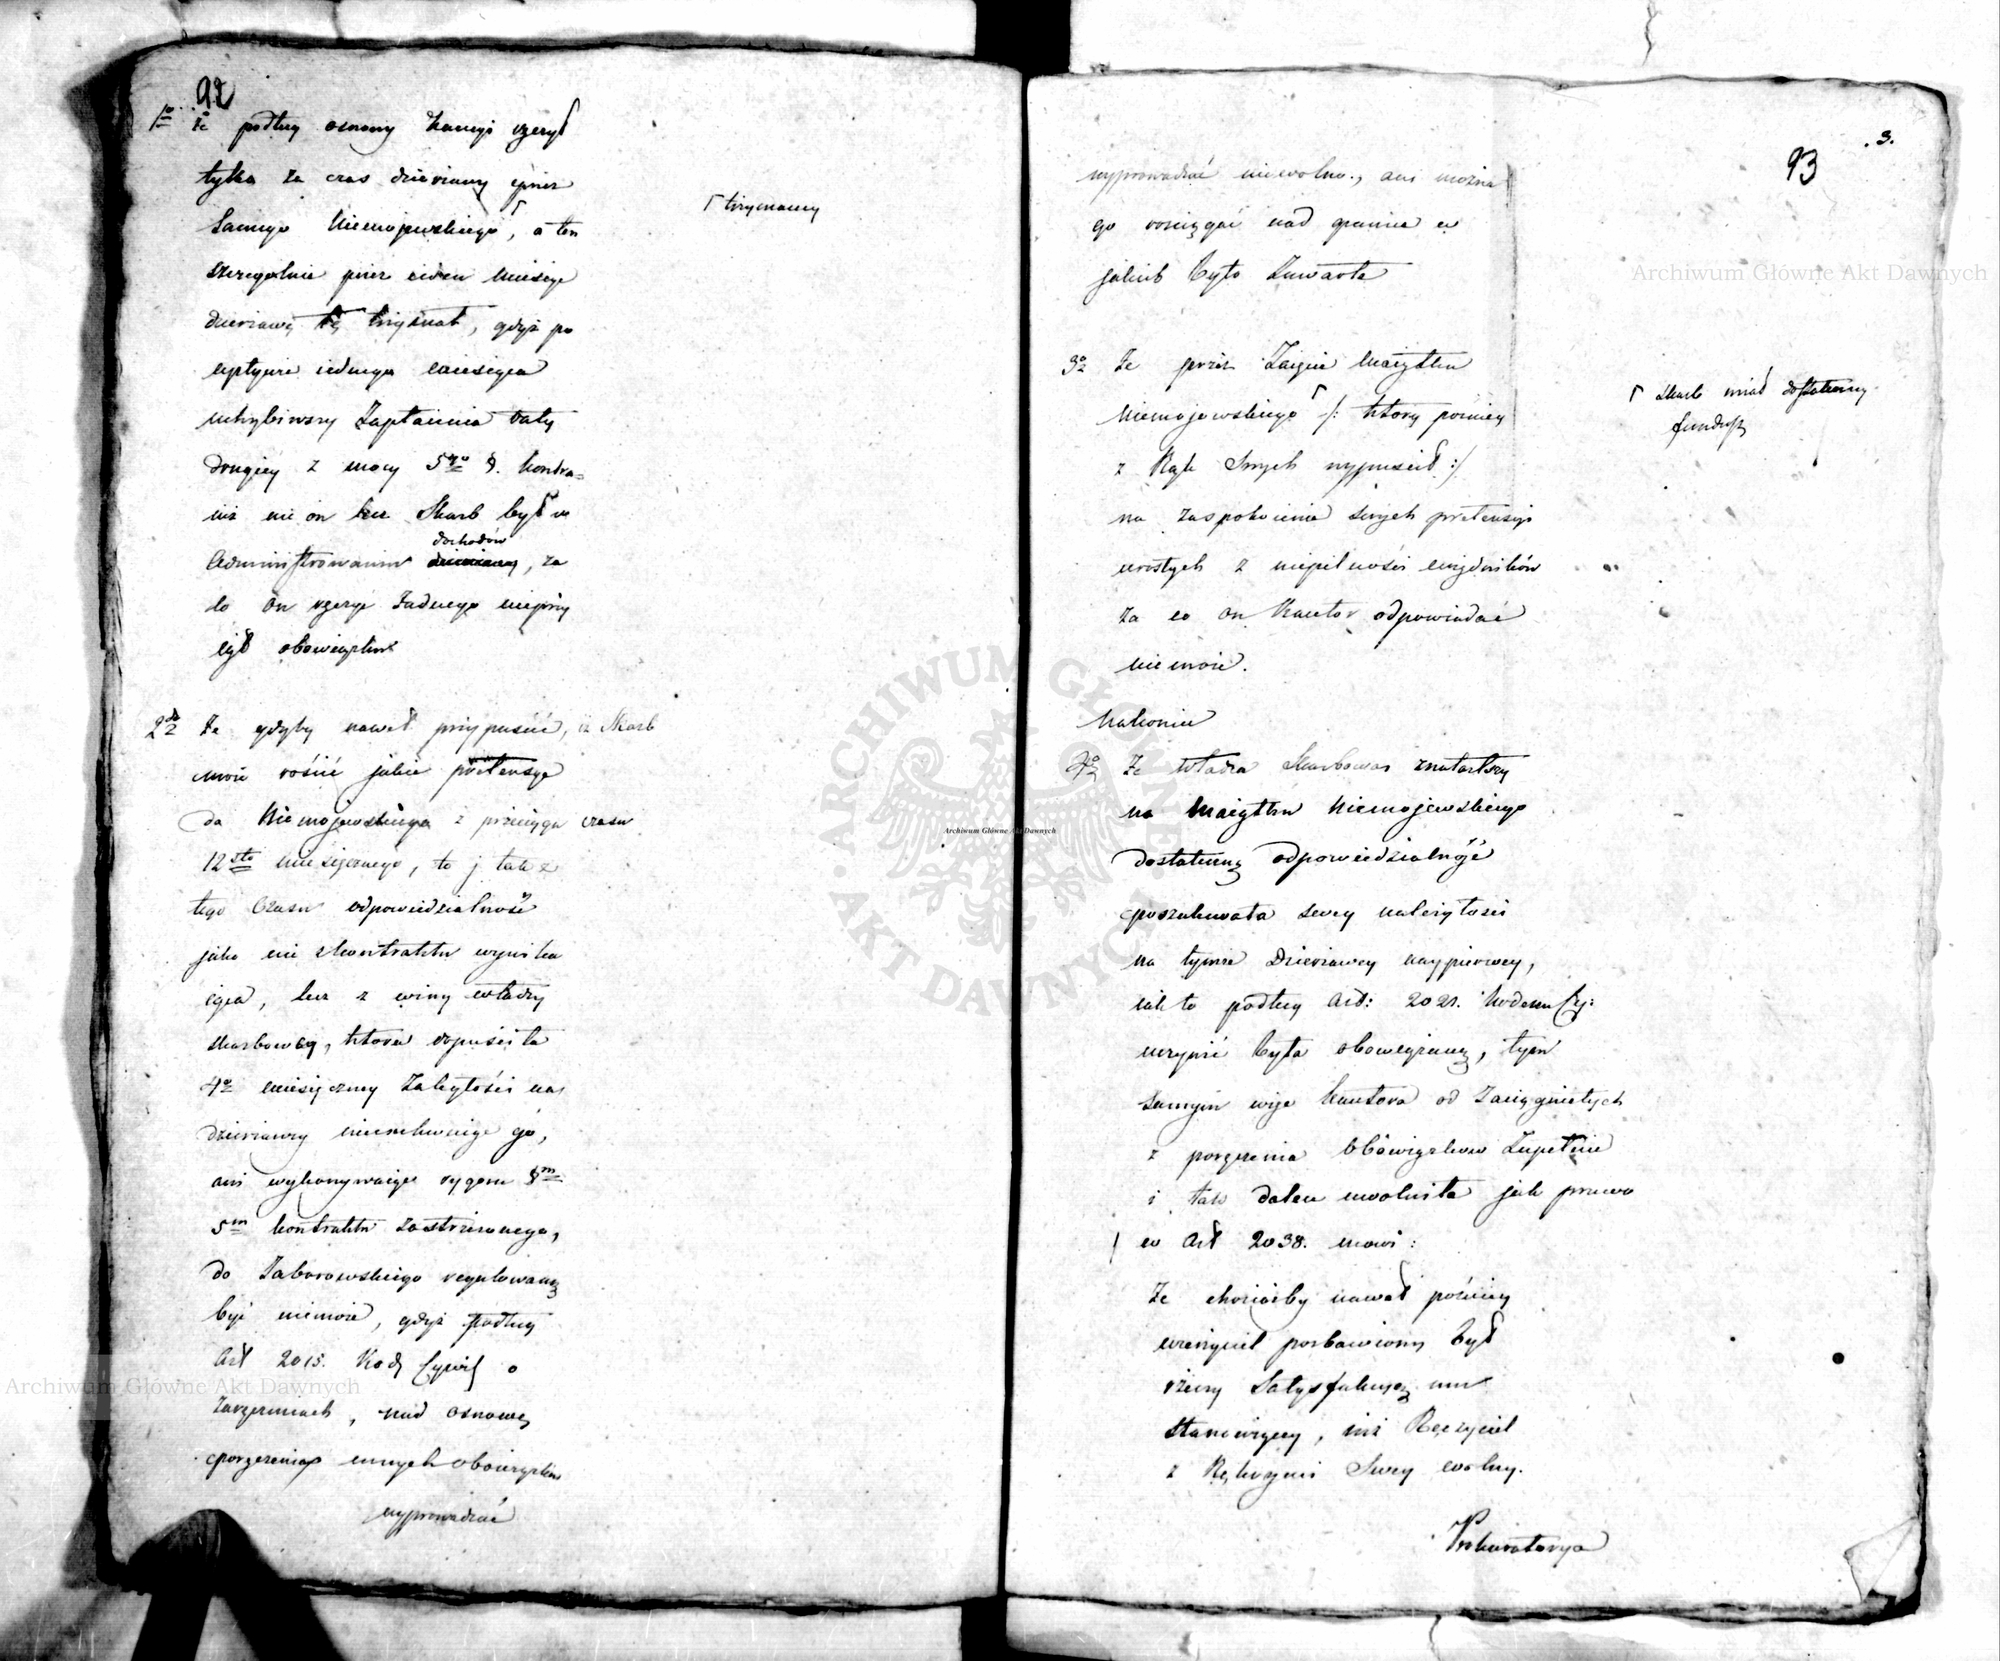 92
1o Że podług osnowy Kaucyi ręczył
tylko za czas dzierżawy przez
samego Niemojewskiego, a ten
szczegulnie przez ieden miesiąc
dzierżawę tę trzymał, gdyż po
upływie iednego miesiąca
uchybiwszy zapłacenia raty
drugiey z mocy 5go §. kontra-
nie on lecz Skarb był w
Administrowaniu dochodów, za
to On ręcząc żadnego nieprzy
iął obowiązku
Γ trzymaney
2do Że gdyby nawet przypuścić, iż Skarb
może rościć jakie pretensye
do Niemojewskiego z przeciągu czasu
12sto miesięcznego, to j tak z
tego Czasu odpowiedzialność
jako nie z kontraktu wynika
iąca, lecz z winy władzy
skarbowey, która dopuściła
4o miesięczney zaległości na
dzierżawcy nieexekwuiąc go,
ani wykonywaiąc rygoru §m
5m kontraktu zastrzeżonego,
do Zaborowskiego regulowaną
być niemoże, gdyż podług
Art 2015. Kod Cywil o
Zaręczeniach, nad osnowę
poręczenia innych obowiązków
wyprowadzać
.3.
93
wyprowadzać niewolno, ani można
go rosciągać nad granice w
jakich było zawarte
3o Że przez Zaięcie maiątku
Niemojewskiego Γ /: który poźniey
z Rąk swych wypuścił :/
na zaspokoienie swych pretensyi
urosłych z niepilności urzędników
za co on Kautor odpowiadać
niemoże.
Γ skarb miał dostateczny
fundusz
Nakoniec
4o Że władza Skarbowa znalazłszy
na maiątku Niemojewskiego
dostateczną odpowiedzialność
poszukiwała swey należytości
na tymże Dzierżawcy naypierwey,
iak to podług Art: 2021. Kodexu Cy:
uczynić była obowiązaną, tym
samym więc Kautora od zaciągniętych
z poręczenia Obowiązków zupełnie
i tak dalece uwolniła jak prawo
w Art 2038. mowi:
Że chociażby nawet poźniey
wierzyciel pozbawiony był
rzeczy Satysfakcyą mu
stanowiącey, iuż Ręczyciel
z Rękoymi swey wolny.
Prokuratorya